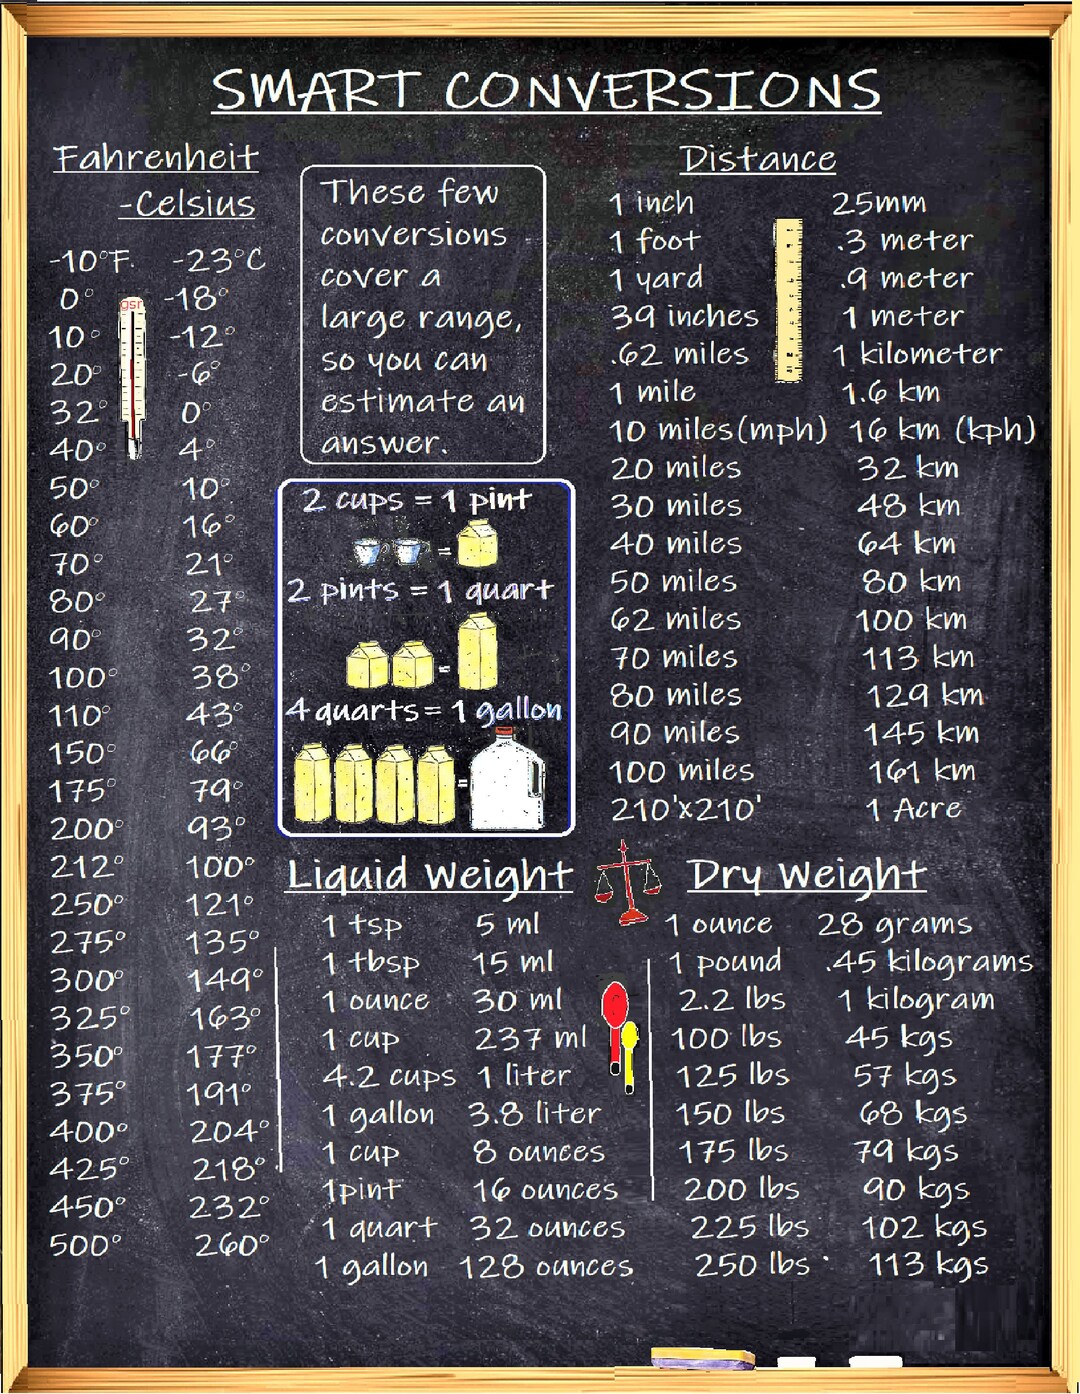 SMART CONVERSIONS
Fahrenheit
-Celsius
-10°F. -23°C
0° -18°
10° -12°
20° -6°
32° 0°
40° 4°
50° 10°
60° 16°
70° 21°
80° 27°
90° 32°
100° 38°
110° 43°
150° 66°
175° 79°
200° 93°
212° 100°
250° 121°
275° 135°
300° 149°
325° 163°
350° 177°
375° 191°
400° 204°
425° 218°
450° 232°
500° 260°
gsr
These few
conversions
cover a
large range,
so you can
estimate an
answer.
2 cups = 1 pint
=
2 pints = 1 quart
=
4 quarts = 1 gallon
=
Distance
1 inch 25mm
1 foot .3 meter
1 yard .9 meter
39 inches 1 meter
.62 miles 1 kilometer
1 mile 1.6 km
10 miles(mph) 16 km (kph)
20 miles 32 km
30 miles 48 km
40 miles 64 km
50 miles 80 km
62 miles 100 km
70 miles 113 km
80 miles 129 km
90 miles 145 km
100 miles 161 km
210'x210' 1 Acre
Liquid Weight
1 tsp 5 ml
1 tbsp 15 ml
1 ounce 30 ml
1 cup 237 ml
4.2 cups 1 liter
1 gallon 3.8 liter
1 cup 8 ounces
1pint 16 ounces
1 quart 32 ounces
1 gallon 128 ounces
Dry Weight
1 ounce 28 grams
1 pound .45 kilograms
2.2 lbs 1 kilogram
100 lbs 45 kgs
125 lbs 57 kgs
150 lbs 68 kgs
175 lbs 79 kgs
200 lbs 90 kgs
225 lbs 102 kgs
250 lbs 113 kgs